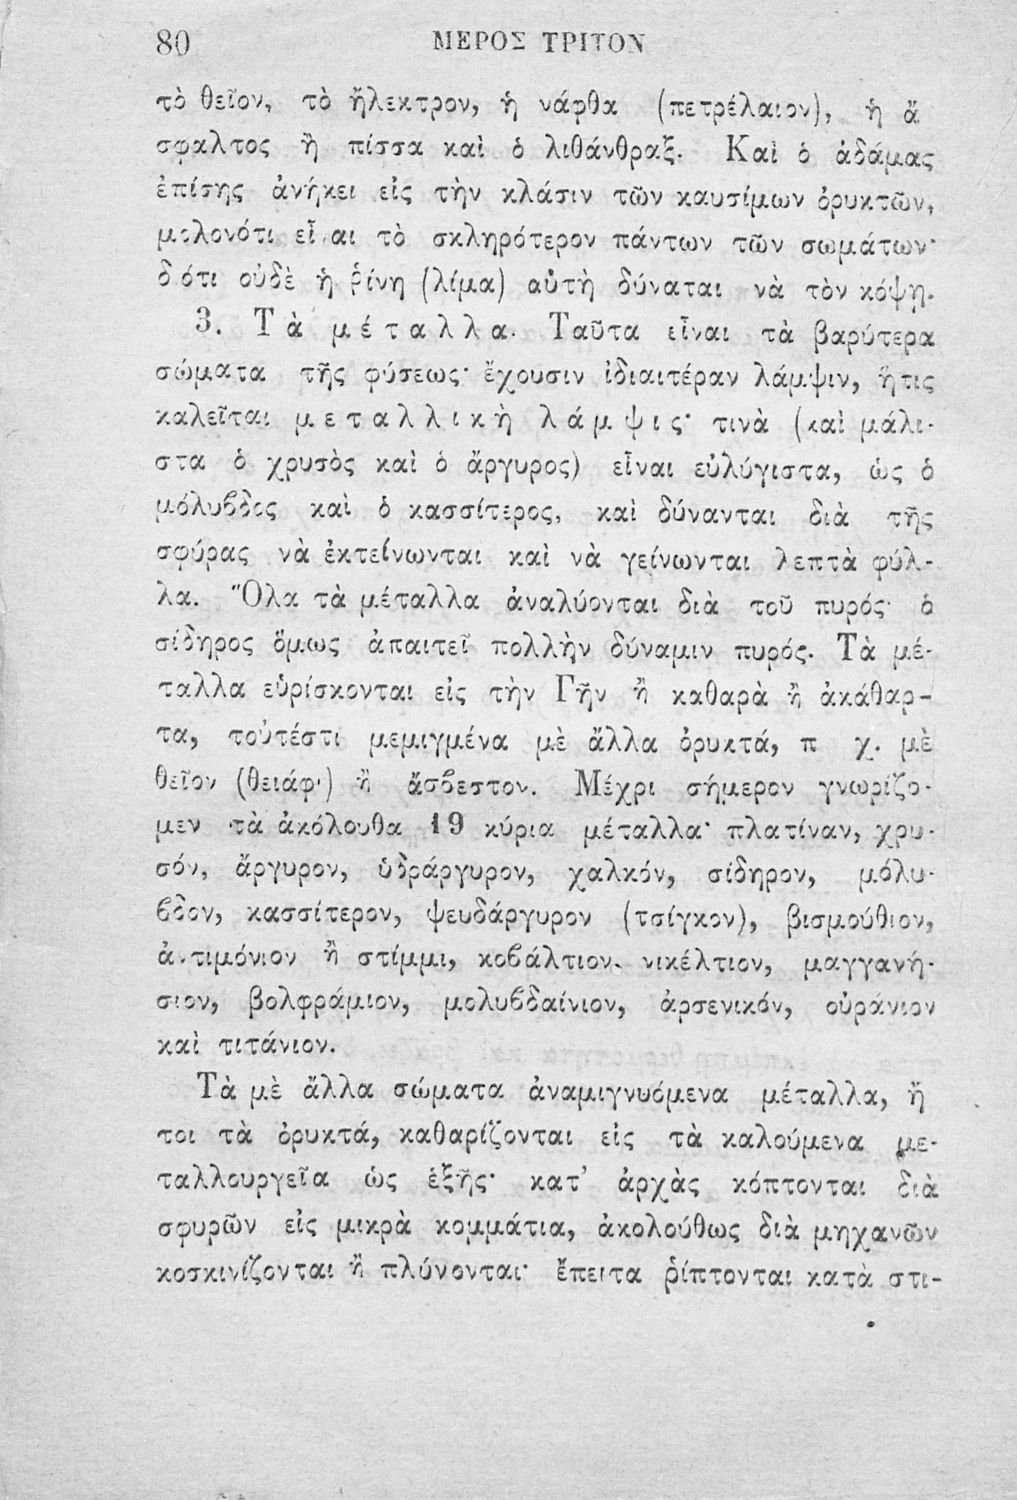 80 ΜΕΡΟΣ ΤΡΙΤΟΝ
τὸ θεῖον, τὸ ἤλεκτρον, ἡ νάφθα (πετρέλαιον), ἡ ἄ
σφαλτος ἢ πίσσα καὶ ὁ λιθάνθραξ. Καὶ ὁ ἀδάμας
ἐπίσης ἀνήκει εἰς τὴν κλάσιν τῶν καυσίμων ὀρυκτῶν,
μολονότι εἶναι τὸ σκληρότερον πάντων τῶν σωμάτων·
διότι οὐδὲ ἡ ῥίνη (λίμα) αὐτὴ δύναται νὰ τὸν κόψῃ.
3. Τὰ μέταλλα. Ταῦτα εἶναι τὰ βαρύτερα
σώματα τῆς φύσεως· ἔχουσιν ἰδιαιτέραν λάμψιν, ἥτις
καλεῖται μεταλλικὴ λάμψις· τινὰ (καὶ μάλι-
στα ὁ χρυσὸς καὶ ὁ ἄργυρος) εἶναι εὐλύγιστα, ὡς ὁ
μόλυβδος καὶ ὁ κασσίτερος, καὶ δύνανται διὰ τῆς
σφύρας νὰ ἐκτείνωνται καὶ νὰ γείνωνται λεπτὰ φύλ-
λα. Ὅλα τὰ μέταλλα ἀναλύονται διὰ τοῦ πυρός· ὁ
σίδηρος ὅμως ἀπαιτεῖ πολλὴν δύναμιν πυρός. Τὰ μέ-
ταλλα εὑρίσκονται εἰς τὴν Γῆν ἢ καθαρὰ ἢ ἀκάθαρ-
τα, τοὐτέστι μεμιγμένα μὲ ἄλλα ὀρυκτά, π χ. μὲ
θεῖον (θειάφι) ἢ ἄσβεστον. Μέχρι σήμερον γνωρίζο-
μεν τὰ ἀκόλουθα 19 κύρια μέταλλα· πλατίναν, χρυ-
σόν, ἄργυρον, ὑδράργυρον, χαλκόν, σίδηρον, μόλυ-
βδον, κασσίτερον, ψευδάργυρον (τσίγκον), βισμούθιον,
ἀντιμόνιον ἢ στίμμι, κοβάλτιον, νικέλτιον, μαγγανή-
σιον, βολφράμιον, μολυβδαίνιον, ἀρσενικόν, οὐράνιον
καὶ τιτάνιον.
Τὰ μὲ ἄλλα σώματα ἀναμιγνυόμενα μέταλλα, ἤ
τοι τὰ ὀρυκτά, καθαρίζονται εἰς τὰ καλούμενα με-
ταλλουργεῖα ὡς ἑξῆς· κατ' ἀρχὰς κόπτονται διὰ
σφυρῶν εἰς μικρὰ κομμάτια, ἀκολούθως διὰ μηχανῶν
κοσκινίζονται ἢ πλύνονται· ἔπειτα ῥίπτονται κατὰ στι-